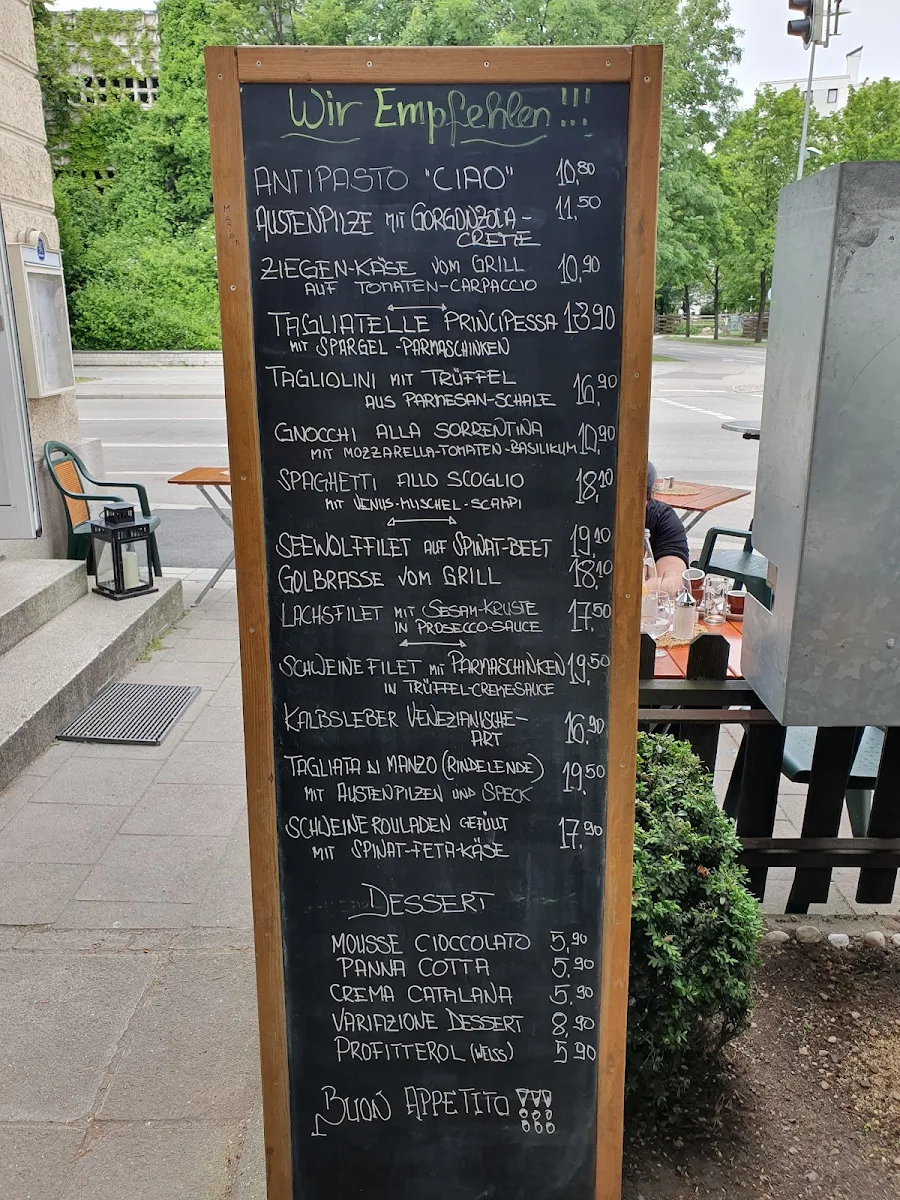 Wir Empfehlen!!!
ANTIPASTO "CIAO" 10,80
AUSTENPILZE MIT GORGONZOLA- 11,50
CREME
ZIEGEN-KÄSE VOM GRILL 10,90
AUF TOMATEN-CARPACCIO
TAGLIATELLE PRINCIPESSA 13,90
MIT SPARGEL-PARMASCHINKEN
TAGLIOLINI MIT TRÜFFEL 16,90
AUS PARMESAN-SCHALE
GNOCCHI ALLA SORRENTINA 10,90
MIT MOZZARELLA-TOMATEN-BASILIKUM
SPAGHETTI ALLO SCOGLIO 18,10
MIT VENUS-MUSCHEL-SCAMPI
SEEWOLFFILET AUF SPINAT-BEET 19,10
GOLBRASSE VOM GRILL 18,10
LACHSFILET MIT SESAM-KRUSTE 17,50
IN PROSECCO-SAUCE
SCHWEINEFILET MIT PARMASCHINKEN 19,50
IN TRÜFFEL-CREMESAUCE
KALBSLEBER VENEZIANISCHE- 16,90
ART
TAGLIATA DI MANZO (RINDELENDE) 19,50
MIT AUSTENPILZEN UND SPECK
SCHWEINEROULADEN GEFÜLLT 17,90
MIT SPINAT-FETA-KÄSE
DESSERT
MOUSSE CIOCCOLATO 5,90
PANNA COTTA 5,90
CREMA CATALANA 5,90
VARIAZIONE DESSERT 8,90
PROFITTEROL (WEISS) 5,90
BUON APPETITO!!!